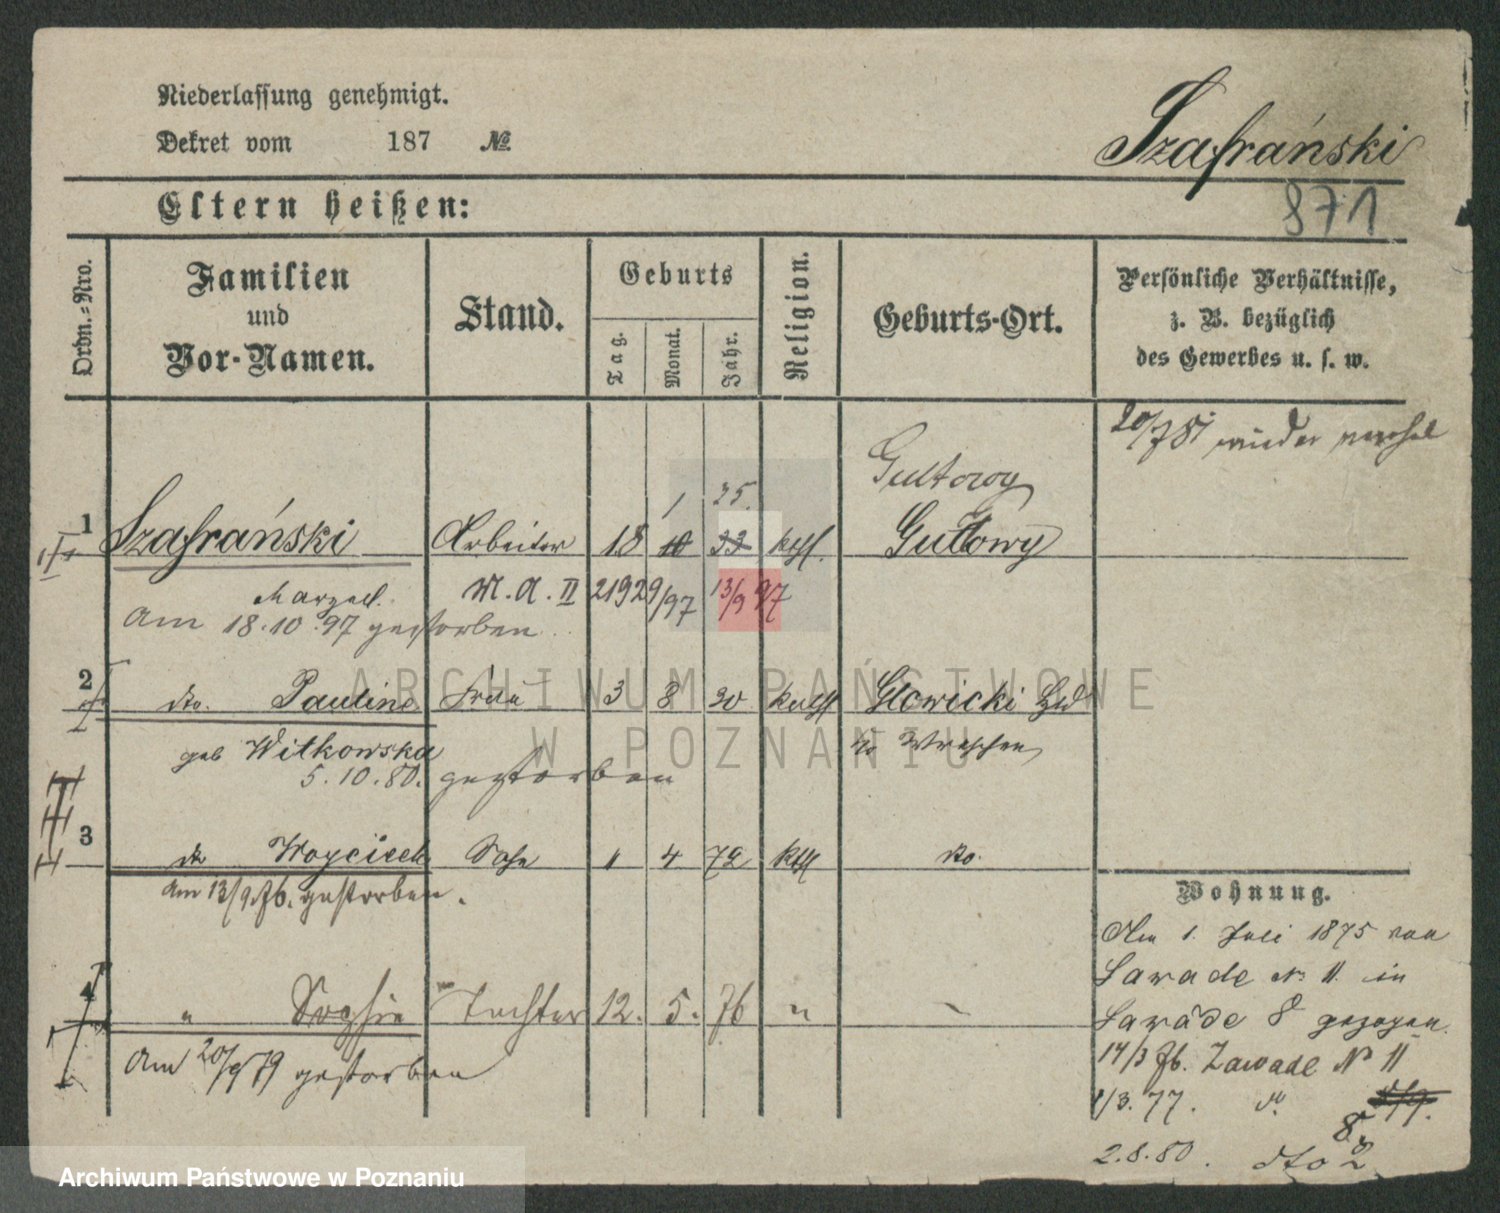 Niederlassung genehmigt.
Dekret vom 187 №
Szafrański
871
Eltern heißen:
Ordn.-Nro.
Familien und Vor-Namen.
Stand.
Geburts
Tag.
Monat.
Jahr.
Religion.
Geburts-Ort.
Persönliche Verhältnisse,
z. B. bezüglich
des Gewerbes u. s. w.
20/7 81 wieder
1 25. Gultowy
1 Szafrański Arbeiter 18 10 33 kath. Gutowy
Marzell. M. A. II 2192 9/97 13/9 97
Am 18.10.97 gestorben.
2 do. Pauline Frau 3 8 30 kath Glowicki
geb Witkowska Wreschen
5.10.80. gestorben
3 do Woyciech Sohn 1 4 72 kath do.
Am 13/9.76. gestorben.
4 " Sophie Tochter 12. 5. 76 "
Am 20/9 79 gestorben
Wohnung.
Am 1. Juli 1875 von
Sawade № 11. in
Sawade 8 gezogen.
14/3 76. Zawade № 11
1/3. 77.
8.
2.8.80. dto 2
ARCHIWUM PAŃSTWOWE
W POZNANIU
Archiwum Państwowe w Poznaniu